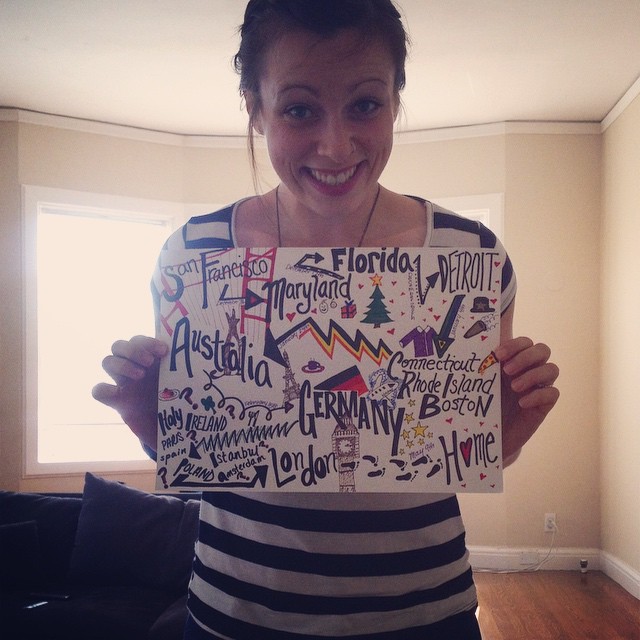 San Francisco
Florida
DETROIT
Maryland
Australia
Connecticut
Rhode Island
BOSTON
GERMANY
Italy
IRELAND
??
PARIS
?
Spain
Istanbul
?
POLAND
Amsterdam
London
Home